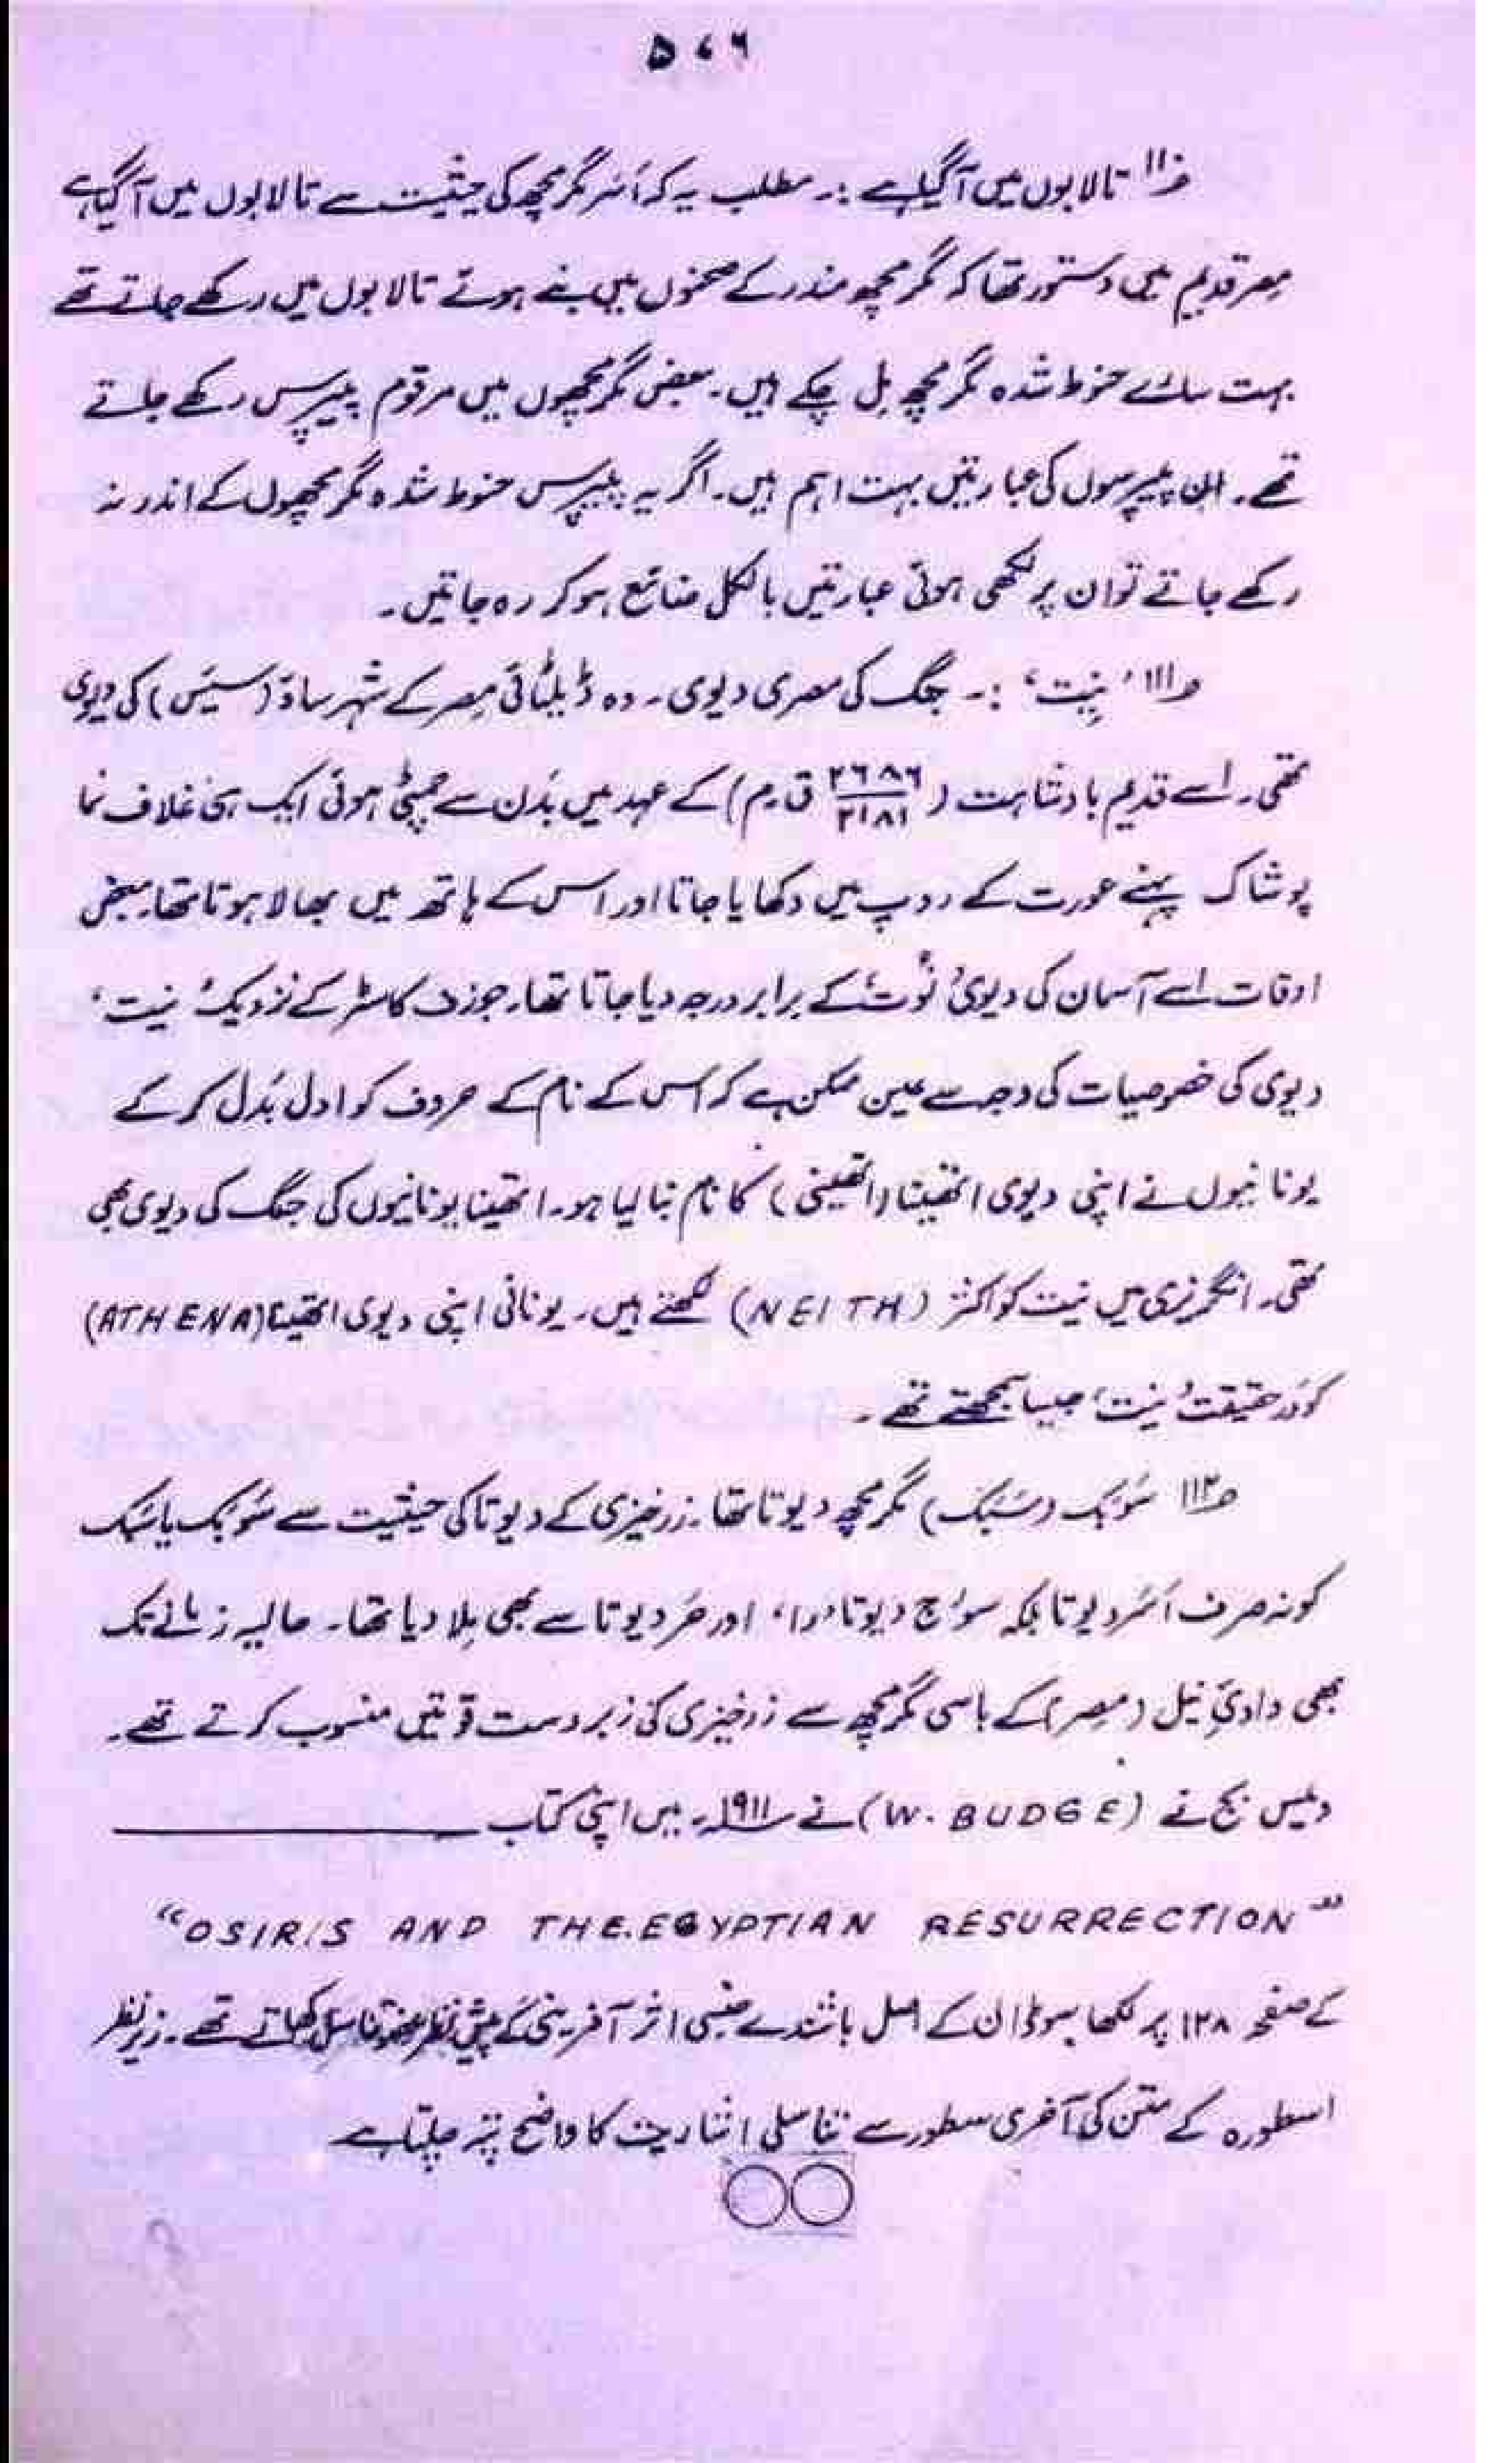 ۵۷۶
۱۱۰؎ تالابوں میں آگیا ہے :۔ مطلب یہ کہ اَسَر مگرمچھ کی حیثیت سے تالابوں میں آگیا ہے
مصر قدیم میں دستور تھا کہ مگر مچھ مندر کے صحنوں میں بنے ہوئے تالابوں میں رکھے جاتے تھے
بہت سارے حنوط شدہ مگر مچھ مِل چکے ہیں۔ بعض مگرمچھوں میں مرقوم پیپرس رکھے جاتے
تھے۔ ان پیپرسوں کی عبارتیں بہت اہم ہیں۔ اگر یہ پیپرس حنوط شدہ مگر مچھوں کے اندر نہ
رکھے جاتے تو ان پر لکھی ہوئی عبارتیں بالکل ضائع ہو کر رہ جاتیں۔
۱۱۱؎ ’نِیت‘ :۔ جنگ کی مصری دیوی۔ وہ ڈیلٹائی مصر کے شہر ساؤ (سیئس) کی دیوی
تھی۔ اسے قدیم بادشاہت (۲۶۸۶/۲۱۸۱ ق۔م) کے عہد میں بدَن سے چمٹی ہوئی ایک ہی غلاف نما
پوشاک پہنے عورت کے روپ میں دکھایا جاتا اور اس کے ہاتھ میں بھالا ہوتا تھا۔ بعض
اوقات اسے آسمان کی دیوی ’نُوت‘ کے برابر درجہ دیا جاتا تھا۔ جوزف کاسٹر کے نزدیک ’نیت‘
دیوی کی خصوصیات کی وجہ سے عین ممکن ہے کہ اس کے نام کے حروف کو ادل بَدَل کر کے
یونانیوں نے اپنی دیوی اتھینا (اتھینی) کا نام بنا لیا ہو۔ اتھینا یونانیوں کی جنگ کی دیوی بھی
تھی۔ انگریزی میں نیت کو اکثر (NEITH) لکھتے ہیں۔ یونانی اپنی دیوی اتھینا (ATHENA)
کو در حقیقت ’نیت‘ جیسا سمجھتے تھے۔
۱۱۲؎ سَوبک (سَبَک) مگرمچھ دیوتا تھا۔ زرخیزی کے دیوتا کی حیثیت سے سَوبک یا سَبک
کو نہ صرف اَسَر دیوتا بلکہ سورج دیوتا ’را‘ اور حَر دیوتا سے بھی مِلا دیا تھا۔ حالیہ زمانے تک
بھی وادیِٔ نیل (مصر) کے باسی مگرمچھ سے زرخیزی کی زبردست قوتیں منسوب کرتے تھے۔
ویلس بج نے (W. BUDGE) نے ۱۹۱۱ء میں اپنی کتاب
“OSIRIS AND THE.EGYPTIAN RESURRECTION”
کے صفحہ ۱۲۸ پر لکھا سوڈان کے اصل باشندے جنسی اثر آفرینی کے پیش نظر عضو تناسل کھاتے تھے۔ زیرِ نظر
اسطورہ کے متن کی آخری سطور سے تناسلی اشاریت کا واضح پتہ چلتا ہے